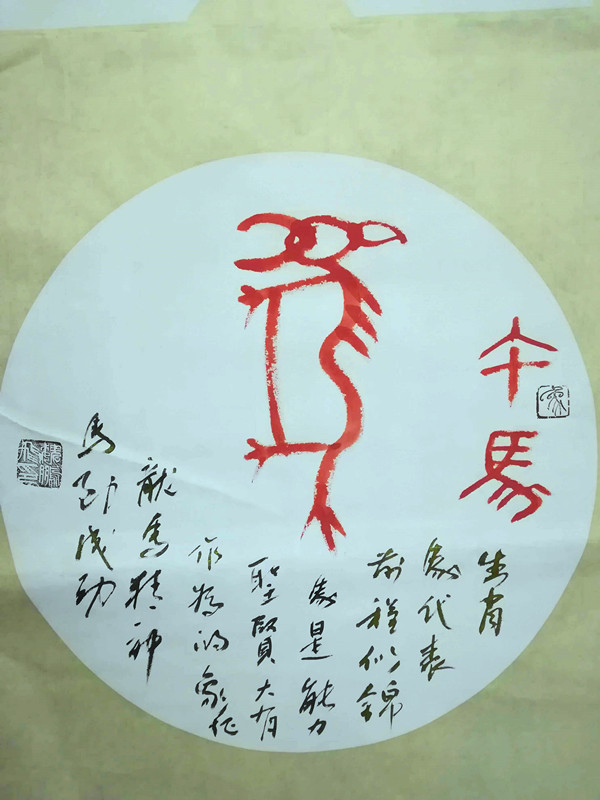 午馬
生肖
象代表
前程似錦
象是能力
聖賢大有
作為的象征
龍馬精神
馬到成功